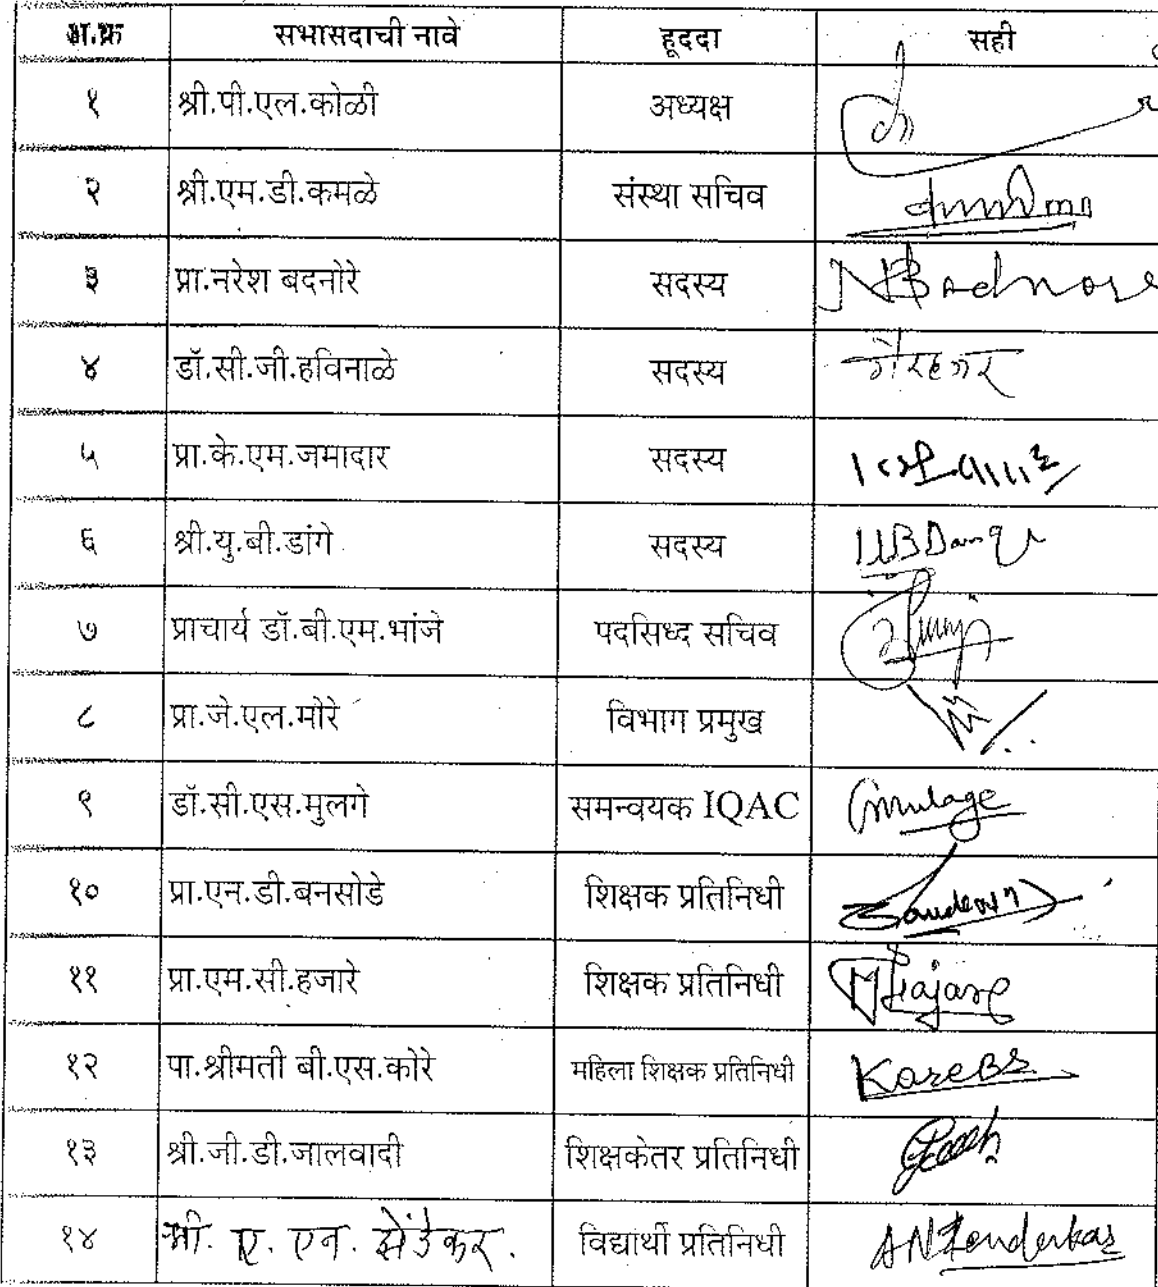 अ.क्र सभासदाची नावे हूददा सही
१ श्री.पी.एल.कोळी अध्यक्ष
२ श्री.एम.डी.कमळे संस्था सचिव
३ प्रा.नरेश बदनोरे सदस्य NBadnore
४ डॉ.सी.जी.हविनाळे सदस्य
५ प्रा.के.एम.जमादार सदस्य
६ श्री.यु.बी.डांगे सदस्य UBDange
७ प्राचार्य डॉ.बी.एम.भांजे पदसिध्द सचिव
८ प्रा.जे.एल.मोरे विभाग प्रमुख
९ डॉ.सी.एस.मुलगे समन्वयक IQAC Cmulage
१० प्रा.एन.डी.बनसोडे शिक्षक प्रतिनिधी
११ प्रा.एम.सी.हजारे शिक्षक प्रतिनिधी MHajare
१२ पा.श्रीमती बी.एस.कोरे महिला शिक्षक प्रतिनिधी KoreBS
१३ श्री.जी.डी.जालवादी शिक्षकेतर प्रतिनिधी
१४ श्री. ए. एन. झेंडेकर. विद्यार्थी प्रतिनिधी ANZenderkar